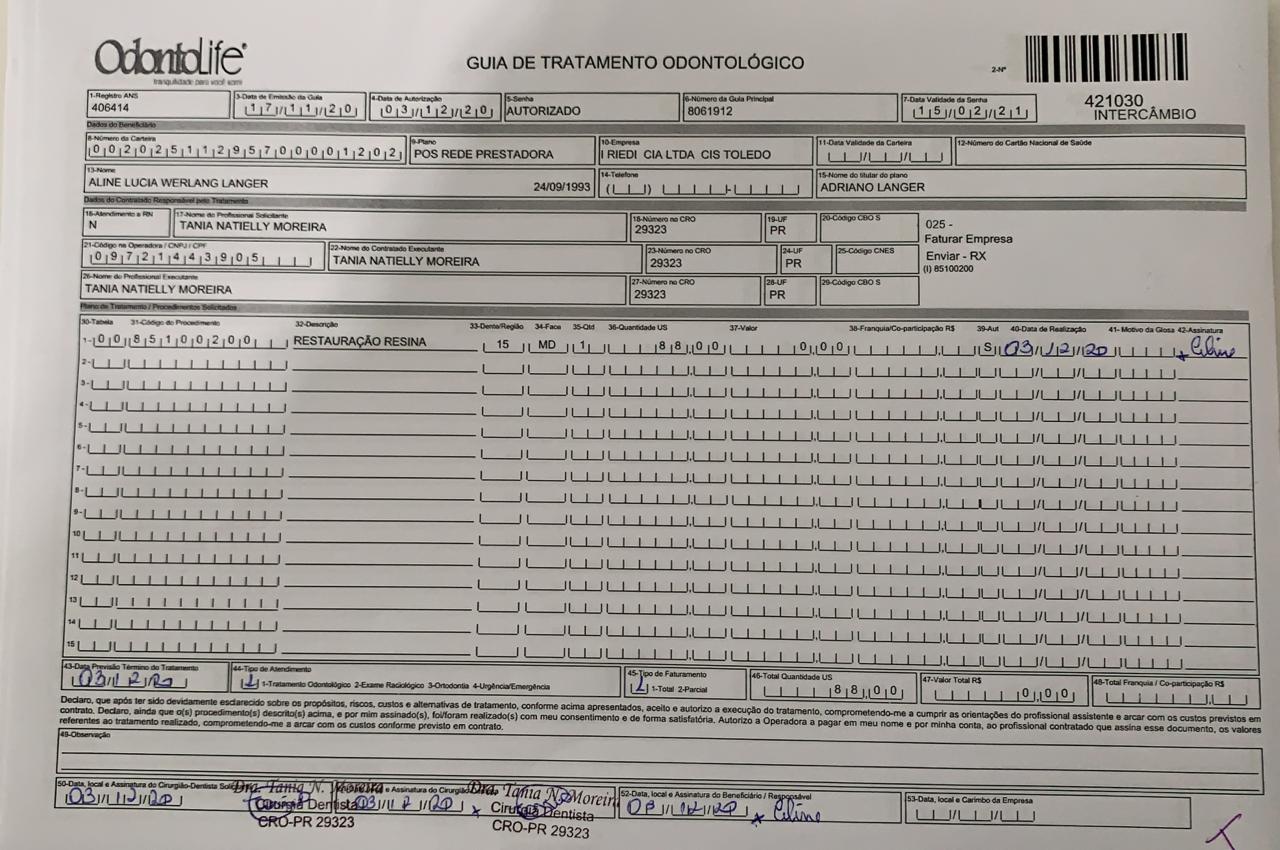 OdontoLife
tranquilidade para você sorrir
GUIA DE TRATAMENTO ODONTOLÓGICO
2-Nº
421030
INTERCÂMBIO
1-Registro ANS
406414
3-Data de Emissão da Guia
17/11/20
4-Data de Autorização
03/12/20
5-Senha
AUTORIZADO
6-Número da Guia Principal
8061912
7-Data Validade da Senha
15/02/21
Dados do Beneficiário
8-Número da Carteira
00202511295700001202
9-Plano
POS REDE PRESTADORA
10-Empresa
I RIEDI CIA LTDA CIS TOLEDO
11-Data Validade da Carteira
12-Número do Cartão Nacional de Saúde
13-Nome
ALINE LUCIA WERLANG LANGER 24/09/1993
14-Telefone
15-Nome do titular do plano
ADRIANO LANGER
Dados do Contratado Responsável pelo Tratamento
16-Atendimento a RN
N
17-Nome do Profissional Solicitante
TANIA NATIELLY MOREIRA
18-Número no CRO
29323
19-UF
PR
20-Código CBO S
025 -
Faturar Empresa
Enviar - RX
(I) 85100200
21-Código na Operadora / CNPJ / CPF
09721443905
22-Nome do Contratado Executante
TANIA NATIELLY MOREIRA
23-Número no CRO
29323
24-UF
PR
25-Código CNES
26-Nome do Profissional Executante
TANIA NATIELLY MOREIRA
27-Número no CRO
29323
28-UF
PR
29-Código CBO S
Plano de Tratamento / Procedimentos Solicitados
30-Tabela 31-Código do Procedimento 32-Descrição 33-Dente/Região 34-Face 35-Qtd 36-Quantidade US 37-Valor 38-Franquia/Co-participação R$ 39-Aut 40-Data de Realização 41- Motivo da Glosa 42-Assinatura
1- 00 85100200 RESTAURAÇÃO RESINA 15 MD 1 88,00 0,00 S 03/12/20 x Aline
2-
3-
4-
5-
6-
7-
8-
9-
10
11
12
13
14
15
43-Data Previsão Término do Tratamento
03/12/20
44-Tipo de Atendimento
1 1-Tratamento Odontológico 2-Exame Radiológico 3-Ortodontia 4-Urgência/Emergência
45-Tipo de Faturamento
1 1-Total 2-Parcial
46-Total Quantidade US
88,00
47-Valor Total R$
0,00
48-Total Franquia / Co-participação R$
Declaro, que após ter sido devidamente esclarecido sobre os propósitos, riscos, custos e alternativas de tratamento, conforme acima apresentados, aceito e autorizo a execução do tratamento, comprometendo-me a cumprir as orientações do profissional assistente e arcar com os custos previstos em
contrato. Declaro, ainda que o(s) procedimento(s) descrito(s) acima, e por mim assinado(s), foi/foram realizado(s) com meu consentimento e de forma satisfatória. Autorizo a Operadora a pagar em meu nome e por minha conta, ao profissional contratado que assina esse documento, os valores
referentes ao tratamento realizado, comprometendo-me a arcar com os custos conforme previsto em contrato.
49-Observação
50-Data, local e Assinatura do Cirurgião-Dentista
03/12/20
Dra. Tania N. Moreira
Cirurgiã Dentista
CRO-PR 29323
e Assinatura do Cirurgião
03/12/20 x
Dra. Tania N. Moreira
Cirurgiã Dentista
CRO-PR 29323
52-Data, local e Assinatura do Beneficiário / Responsável
03/12/20 x Aline
53-Data, local e Carimbo da Empresa